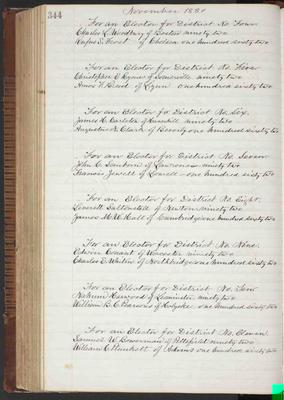 344
November 1880
For an Elector for District No. Four
Charles L. Woodbury of Boston ninety two
Rufus S. Frost of Chelsea one hundred sixty two
For an Elector for District No. Five
Christopher E. Rymes of Somerville ninety two
Amos F. Breed of Lynn one hundred sixty two
For an Elector for District No. Six
James H. Carleton of Haverhill ninety two
Augustus N. Clark of Beverly one hundred sixty two
For an Elector for District No. Seven
John C. Sanborn of Lawrence ninety two
Francis Jewell of Lowell one hundred sixty two
For an Elector for District No. Eight
Leverett Saltonstall of Newton ninety two
James M. W. Hall of Cambridge one hundred sixty two
For an Elector for District No. Nine
Edwin Conant of Worcester ninety two
Charles E. Whitin of Northbridge one hundred sixty two
For an Elector for District No. Ten
Nahum Harwood of Leominster ninety two
William B. C. Pearsons of Holyoke one hundred sixty two
For an Elector for District No. Eleven
Samuel W. Bowerman of Pittsfield ninety two
William C. Plunkett of Adams one hundred sixty two